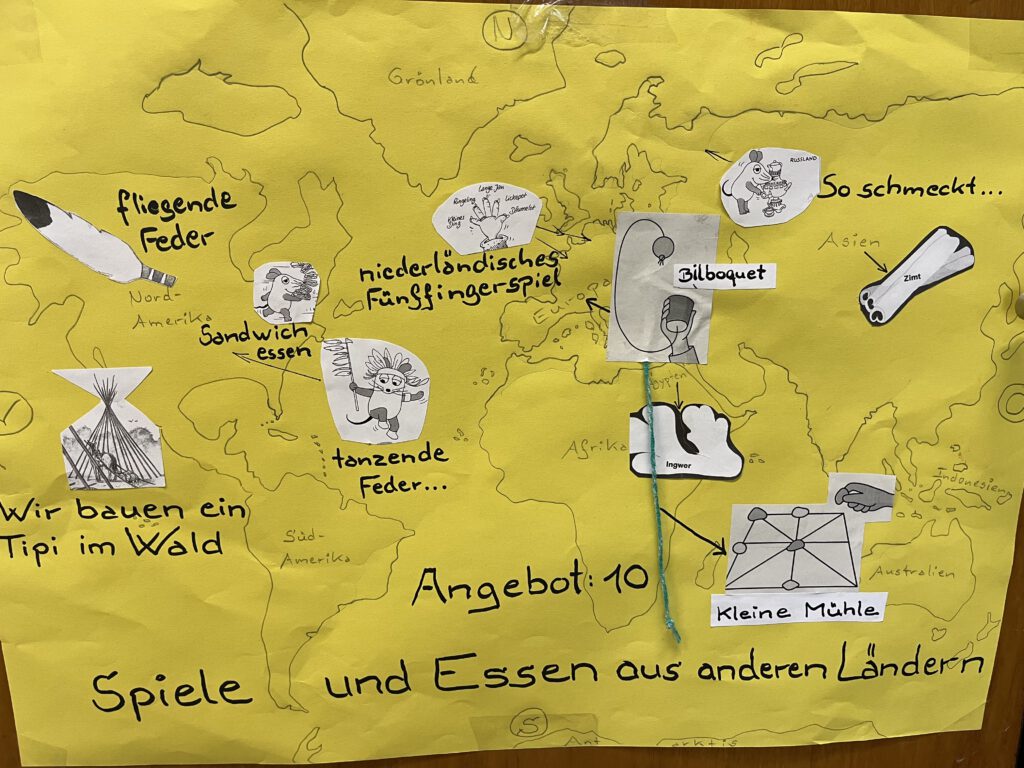 N
Grönland
fliegende
Feder
Nord-
Amerika
Sandwich
essen
Lange Jan
Ringeling
Kleines
Ding
niederländisches
Fünffingerspiel
Europa
Bilboquet
RUSSLAND
So schmeckt...
Asien
Zimt
tanzende
Feder...
Wir bauen ein
Tipi im Wald
Süd-
Amerika
Afrika
Ingwer
Indonesien
Australien
Kleine Mühle
Angebot: 10
Spiele und Essen aus anderen Ländern
S